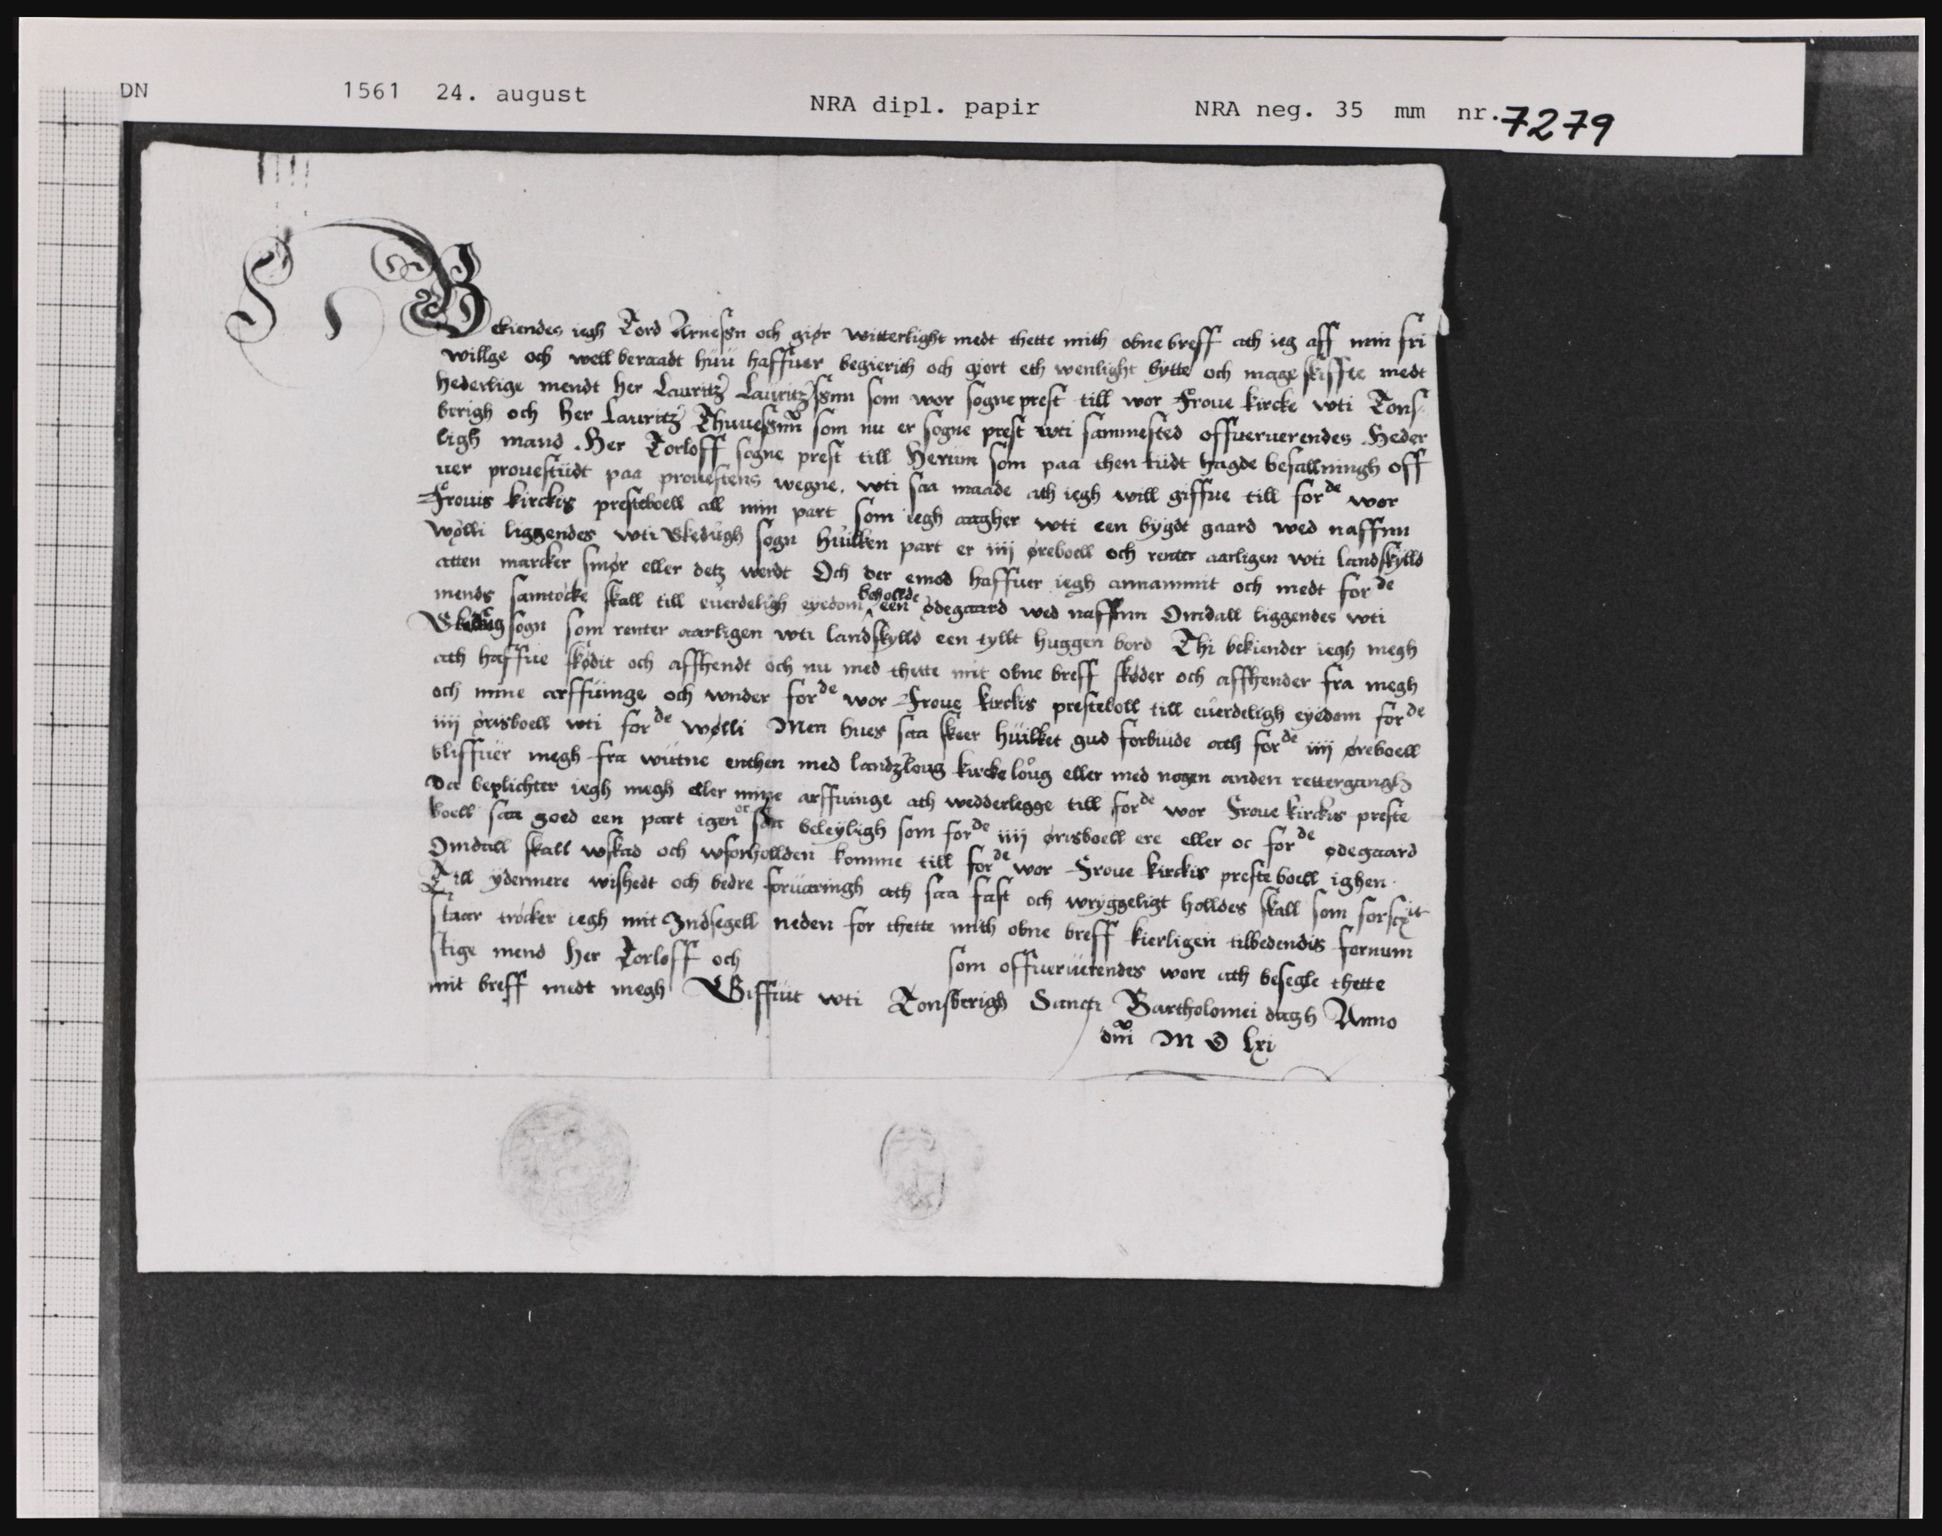 DN 1561 24. august NRA dipl. papir NRA neg. 35 mm nr. 7279
Bekiendes iegh Tord Arnessn och giør witterlight medt thette mith obne breff ath ieg aff min fri
willge och well beraadt huu haffuer begierich och giort eth wenlight bytte och mageskiffte medt
hederlige mendt her Lauritz Lauritzssnn som wor sogneprest till wor Froue kircke wti Tons
berigh och her Lauritz Thuuessnn som nu er sogne prest wti sammested offueruerendes Heder
ligh mand Her Torloff sogne prest till Herum som paa then tiidt hagde befallningh off
uer prouestiidt paa prouestens wegne, wti saa maade ath iegh will giffue till forde wor
Frouis kirckis presteboell all min part som iegh aagher wti een bygdt gaard wed naffnn
wølli liggendes wti Skedugh sogn huilken part er iiij øreboell och renter aarligen wti landskylld
atten marcker smør eller detz werdt Och der emod haffuer iegh annammit och medt forde
mends samtøcke skall till euerdeligh eyedom behollde een ødegaard wed naffnn Omdall liggendes wti
Skedug sogn som renter aarligen wti landskylld een tyllt huggen bord Thi bekiender iegh megh
ath haffue skødit och affhendt och nu med thette mit obne breff skøder och affhender fra megh
och mine arffuinge och wnder forde wor Froue kirckis presteboll till euerdeligh eyedom forde
iiij ørisboell wti forde wølli Men hues saa skeer huilket gud forbiude ath forde iiij øreboell
bliffuer megh fra wutne enthen med landzloug kircke loug eller med nogen anden rettergangh
Da beplichter iegh megh eller mine arffuinge ath wedderlegge till forde wor Froue kirckis preste
boell saa goed een part igen oc saa beleyligh som forde iiij ørisboell ere eller oc forde ødegaard
Omdall skall wskad och wforhollden komme till forde wor Froue kirckis preste boell ighen
Till ydermere wishedt och bedre foruaringh ath saa fast och wryggeligt holldes skall som forscrit
staar trøcker iegh mit Indsegell neden for thette mith obne breff kierligen tilbedendis fornum
stige mend Her Torloff och som offueruerendes wore ath besegle thette
mit breff medt megh Giffuit wti Tonsberigh Sancti Bartholomei dagh Anno
dni M D lxi